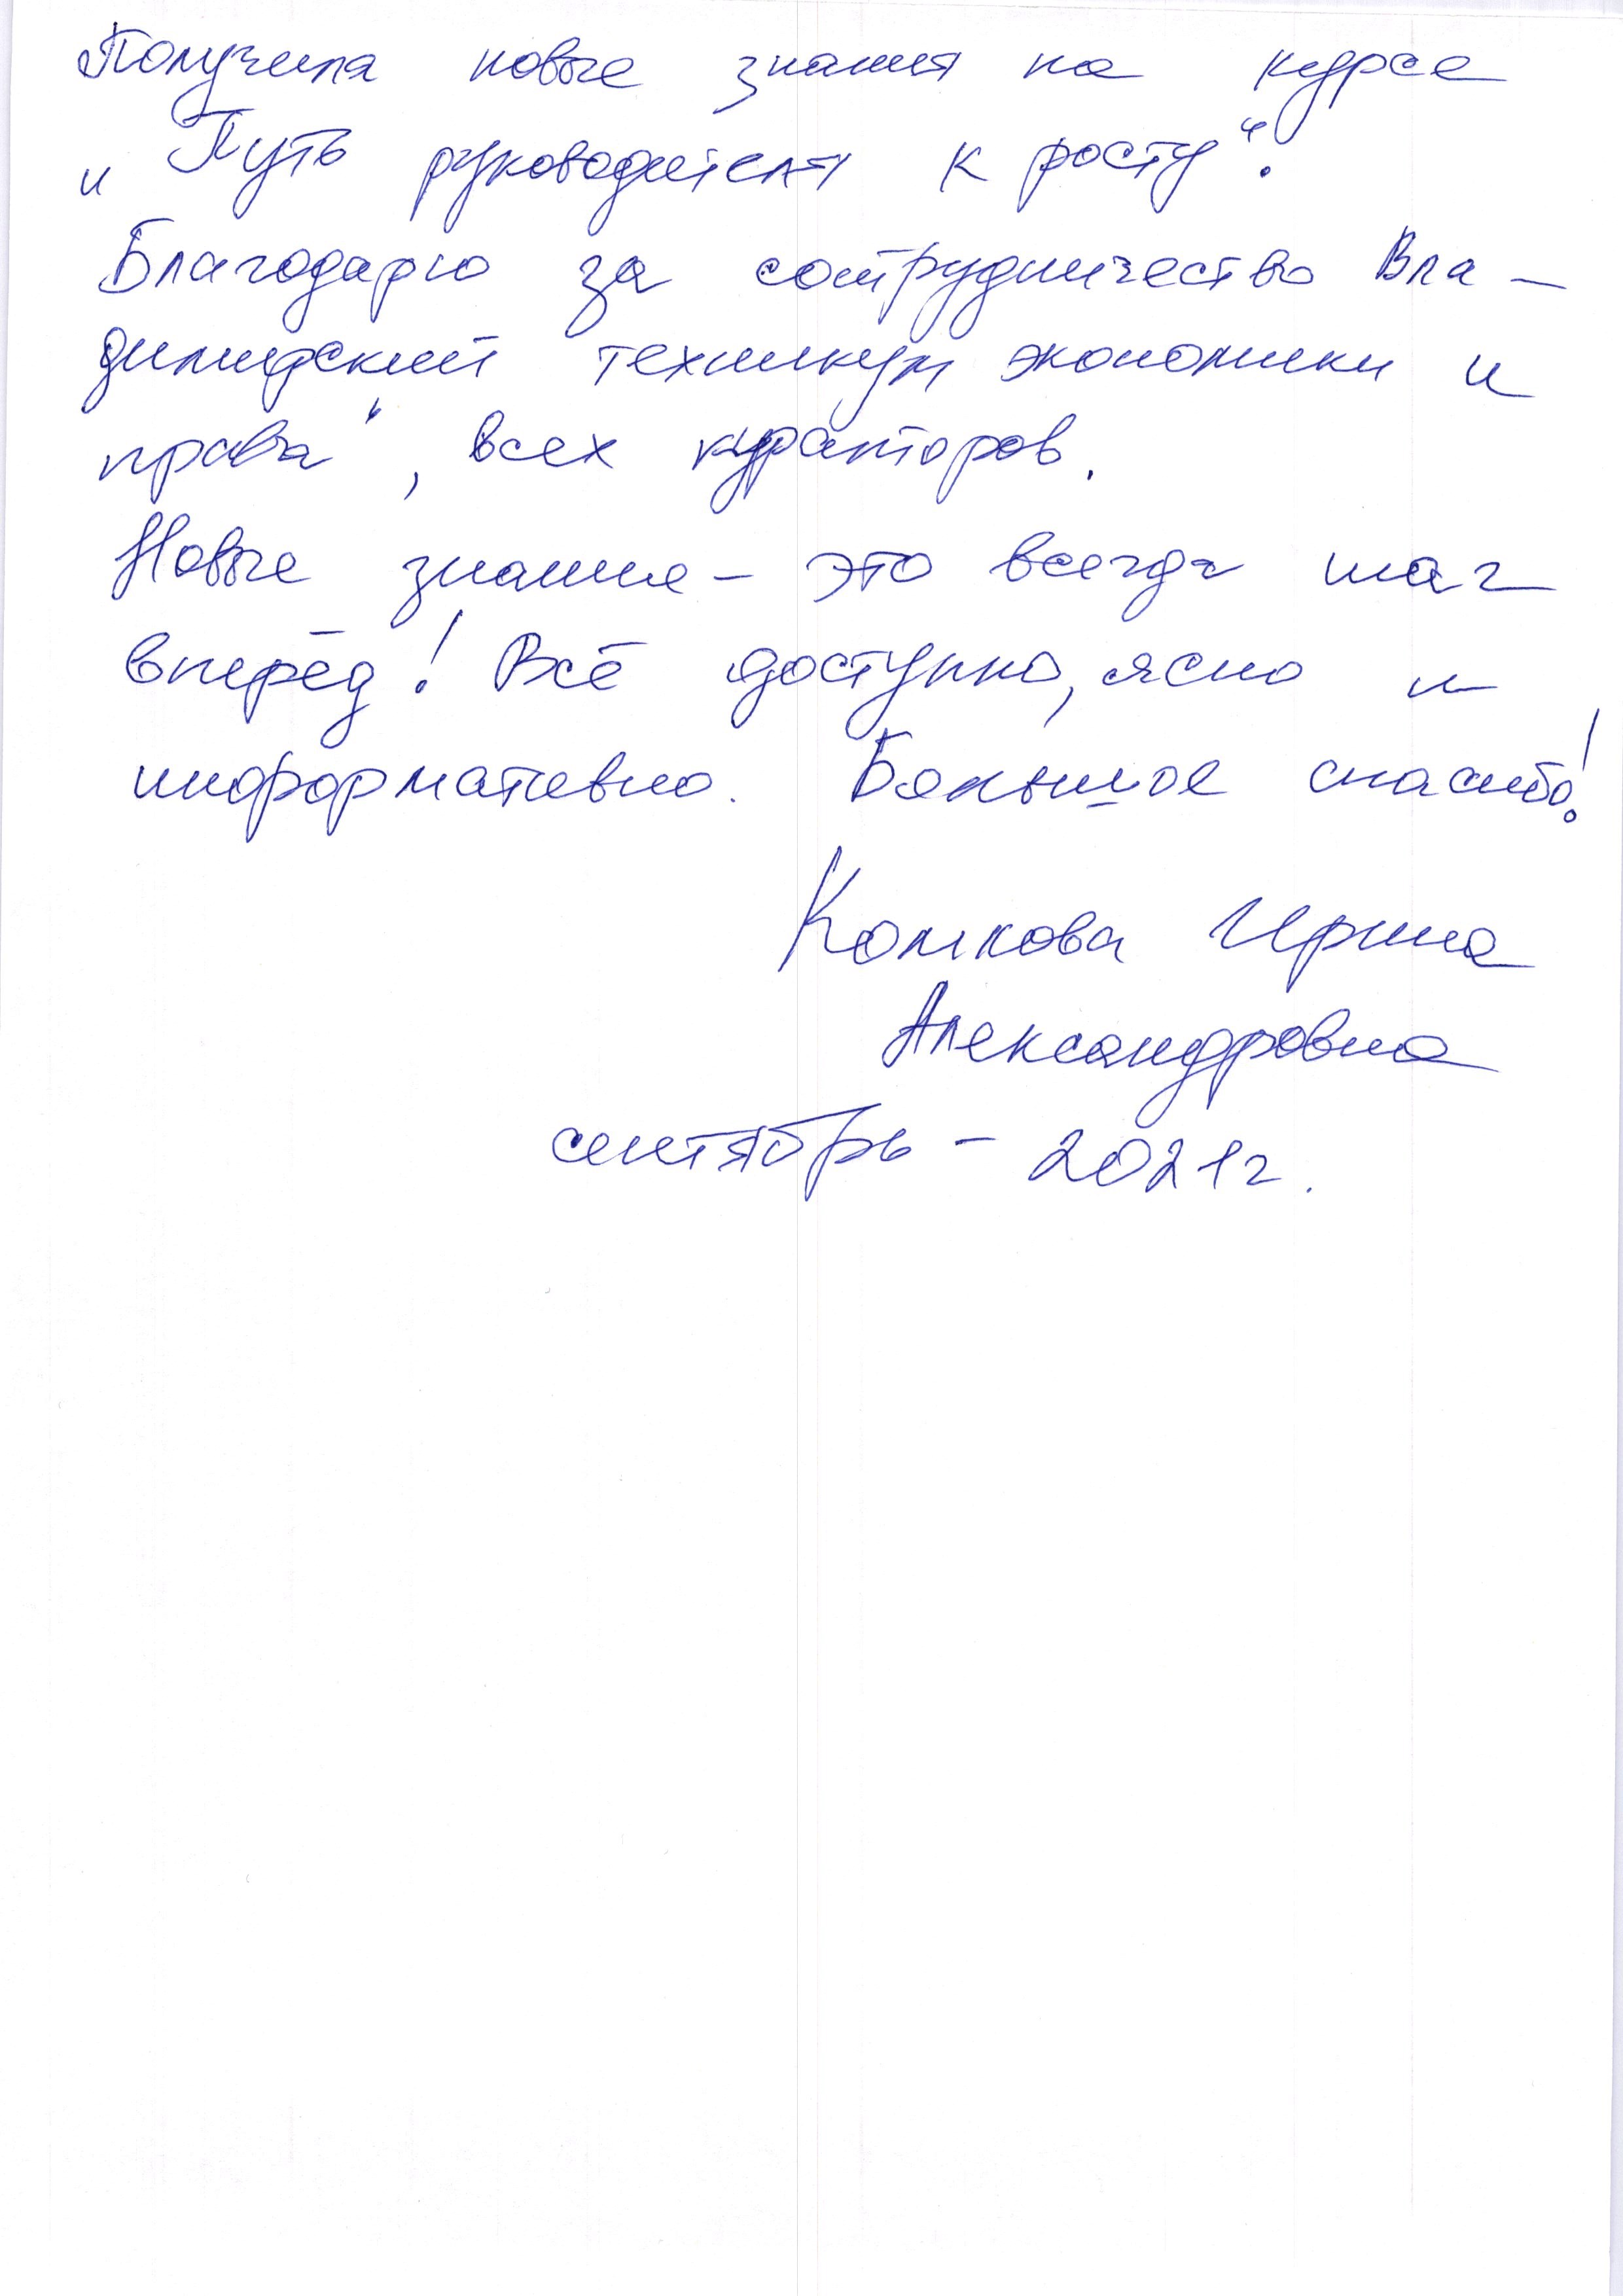 Получила новые знания на курсе
„Путь руководителя к росту“.
Благодарю за сотрудничество Вла-
димирский техникум экономики и
права“, всех кураторов.
Новые знания - это всегда шаг
вперёд! Всё доступно, ясно и
информативно. Большое спасибо!
Ирина
Александровна
сентябрь - 2021г.